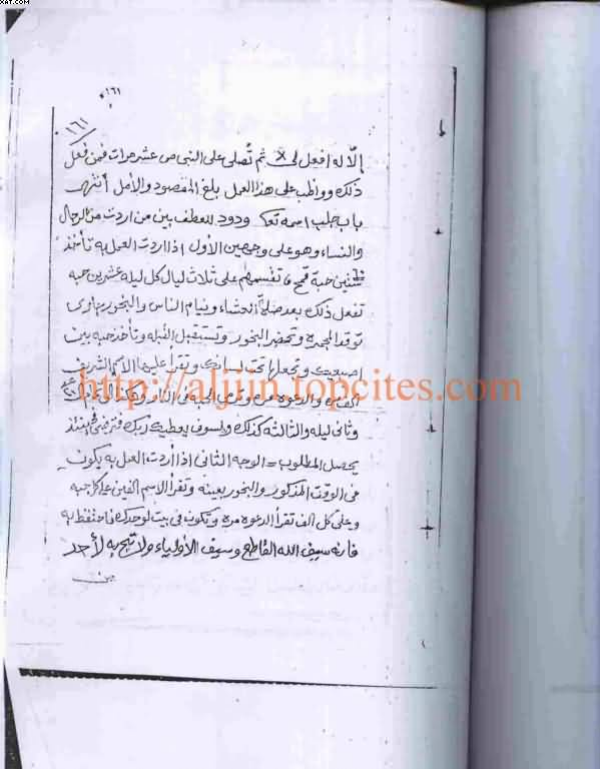 XAT.COM
١٦١
١٦١
إلا له افعل لى ثم تصلى على النبى ص عشر مرات فمن فعل
ذلك وواظب على هذا العمل بلغ المقصود والأمل أنتهى
باب طلب اسمه تعا ودود للعطف بين من اردت من الرجال
والنساء وهو على وجهين الأول اذا اردت العمل به تأخذ
ستين حبة قمح فاتقسمهم على ثلاث ليال كل ليله عشرين حبه
تفعل ذلك بعد صلاة العشاء وينام الناس والبخور جاوى
توقد المجمره وتحضر البخور وتستقبل القبله وتأخذ حبه بين
إصبعيك وتجعلها تحت لسانك وتقرأ عليها الاسم الشريف
http://aljiin.topcites.com
مره والدعوه مره وترمى الحبه فى النار وهكذا
وثانى ليله والثالثه كذلك ولسوف يعطيك ربك فترضى فحينئذ
يحصل المطلوب = الوجه الثانى اذا أردت العمل به يكون
فى الوقت المذكور والبخور بعينه وتقرأ الاسم الفين على كل حبه
وعلى كل الف تقرأ الدعوه مره وتكون فى بيت لوحدك فاحتفظ به
فإنه سيف الله القاطع وسيف الأولياء ولا تبح به لأحد